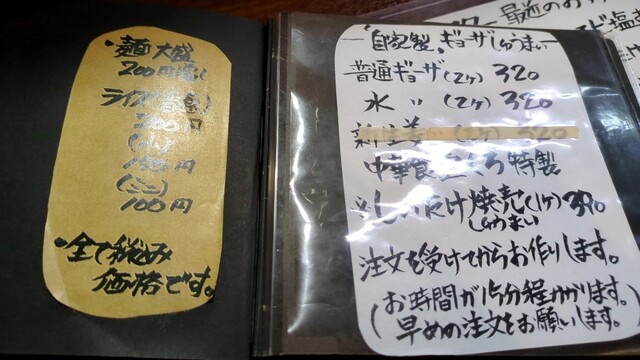 ・麺大盛
200円増し
ライス(普通)
200円
(小)
150円
(ミニ)
100円
・全て税込み
価格です。
自家製、ギョーザしゅうまい
普通ギョーザ(2ヶ) 320
水 〃 (2ヶ) 320
中華食
特製
しいたけ焼売(1ヶ) 390
(しゅうまい)
注文を受けてからお作りします。
(お時間が15分程かかります。
早めの注文をお願いします。)
最近のお